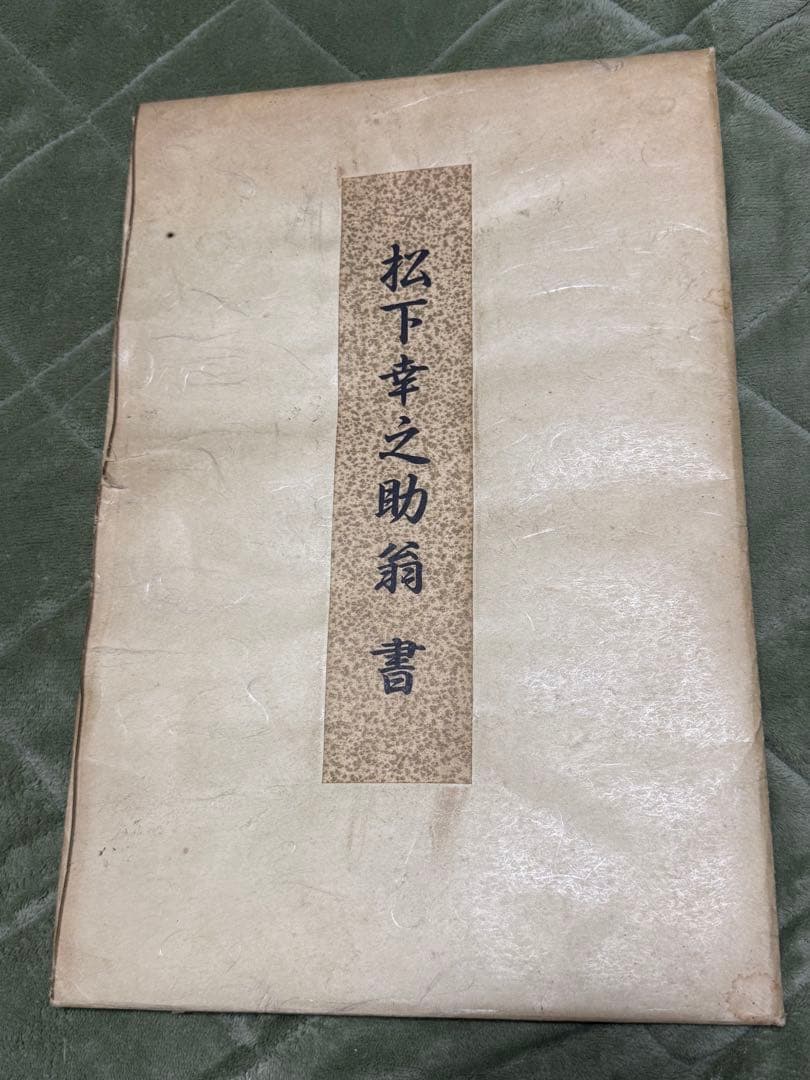 松下幸之助翁 書